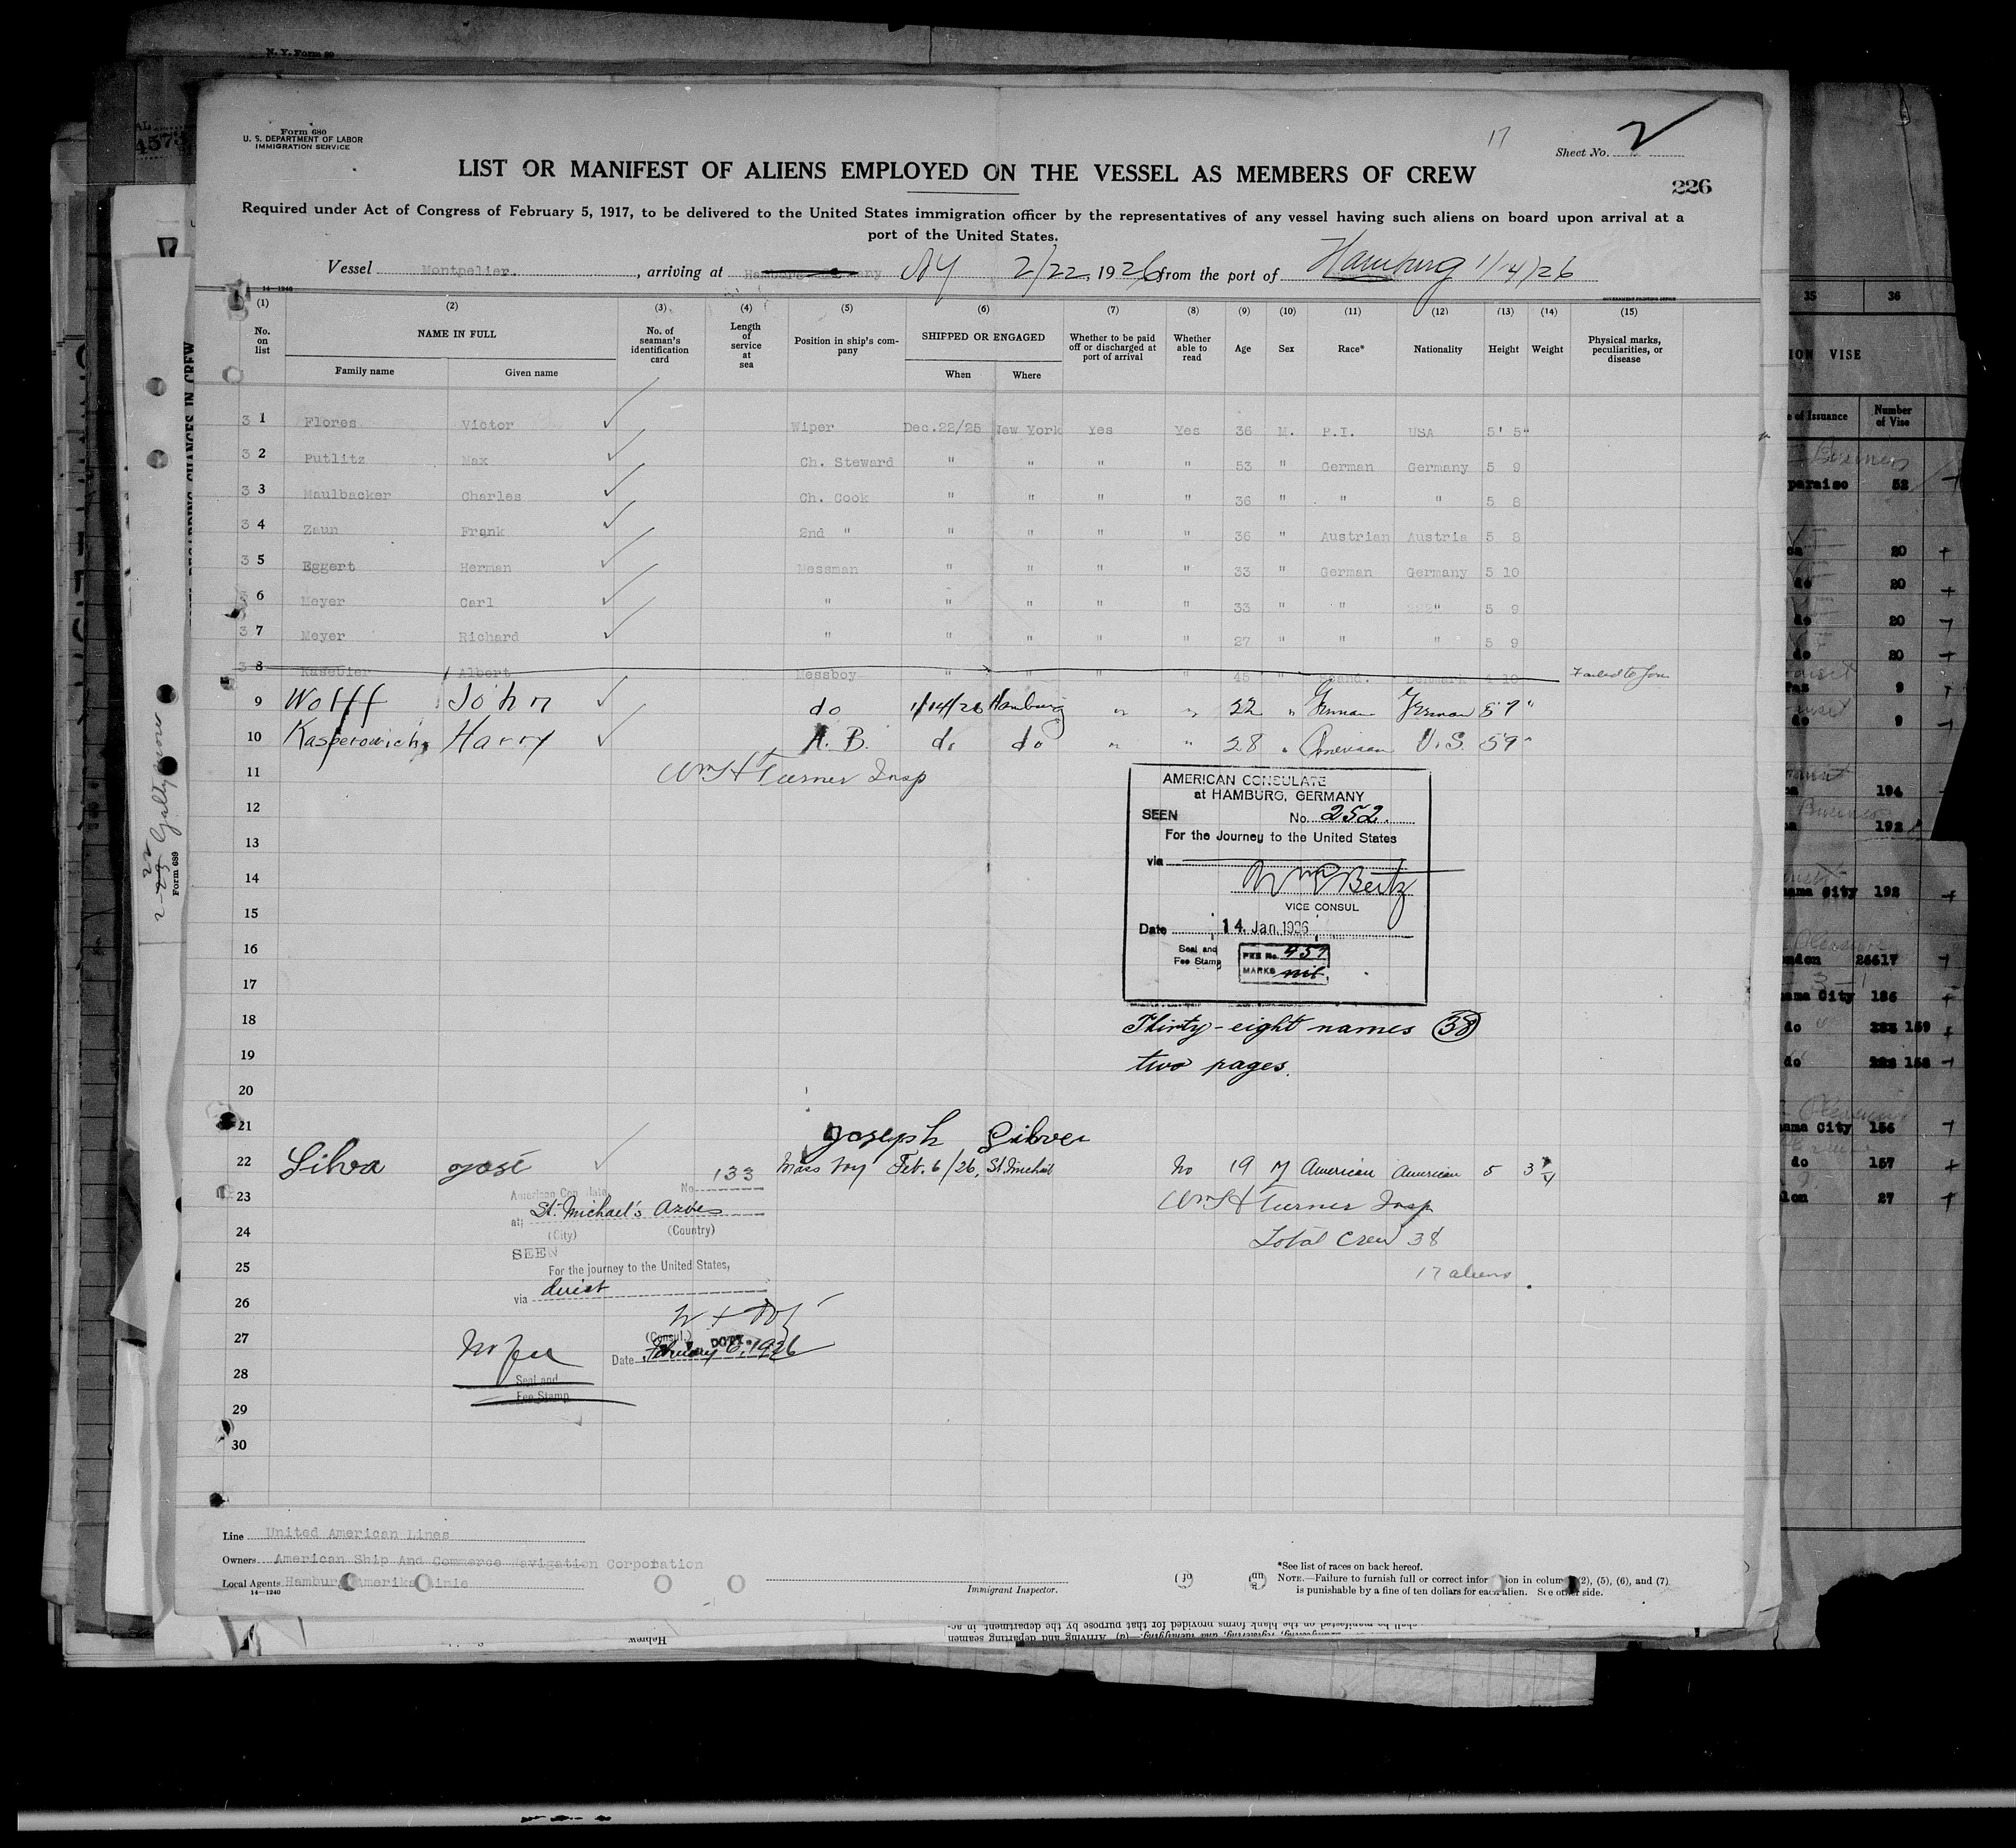 N. Y. Form 89
Form 680
U. S. DEPARTMENT OF LABOR
IMMIGRATION SERVICE
17
Sheet No. 2
LIST OR MANIFEST OF ALIENS EMPLOYED ON THE VESSEL AS MEMBERS OF CREW
226
Required under Act of Congress of February 5, 1917, to be delivered to the United States immigration officer by the representatives of any vessel having such aliens on board upon arrival at a
port of the United States.
Vessel Montpelier. , arriving at NY 2/22, 1926 from the port of Hamburg 1/14/26
14—1240
GOVERNMENT PRINTING OFFICE
(1) (2) (3) (4) (5) (6) (7) (8) (9) (10) (11) (12) (13) (14) (15)
No. on list NAME IN FULL No. of seaman's identification card Length of service at sea Position in ship's company SHIPPED OR ENGAGED Whether to be paid off or discharged at port of arrival Whether able to read Age Sex Race* Nationality Height Weight Physical marks, peculiarities, or disease
Family name Given name When Where
3 1 Flores Victor Wiper Dec.22/25 New York Yes Yes 36 M. P.I. USA 5' 5"
3 2 Putlitz Max Ch. Steward " " " " 53 " German Germany 5 9
3 3 Maulbacker Charles Ch. Cook " " " " 36 " " " 5 8
3 4 Zaun Frank 2nd " " " " " 36 " Austrian Austria 5 8
3 5 Eggert Herman Messman " " " " 33 " German Germany 5 10
3 6 Meyer Carl " " " " " 33 " " " 5 9
3 7 Meyer Richard " " " " " 27 " " " 5 9
3 8 Kasebier Albert Messboy " " " " 45 " Scand. Denmark 4 10 Failed to Join
9 Wolff John do 1/14/26 Hamburg " " 22 " German German 5 7"
10 Kasperowich, Harry A. B. do do " " 28 " American U.S. 5 9"
11 Wm H Turner Insp
AMERICAN CONSULATE
at HAMBURG, GERMANY
SEEN No. 252.
For the Journey to the United States
via
VICE CONSUL
Date 14. Jan. 1926
Seal and Fee Stamp
FEE No. 457
MARKS nil
12
13
14
15
16
17
18 Thirty-eight names 38
19 two pages.
20
21 Joseph Silver
22 Silva José Mess boy Feb. 6/26, St. Michael No 19 M American American 5 3 3/4
American Consulate, No. 133
23 Wm H Turner Insp
at St. Michael's Azores
(City) (Country)
24 Total Crew 38
SEEN
25 For the journey to the United States, 17 aliens
via direct
26
(Consul.)
27 No fee Date February 6, 1926
28 Seal and
Fee Stamp
29
30
Line United American Lines
Owners American Ship And Commerce Navigation Corporation
Local Agents Hamburg Amerika Linie
14—1240
Immigrant Inspector.
*See list of races on back hereof.
NOTE.—Failure to furnish full or correct information in columns (2), (5), (6), and (7)
is punishable by a fine of ten dollars for each alien. See other side.
Form 689
35 36
ION VISE
e of Issuance Number of Vise
paraiso 52
20
do 20
do 20
do 20
9
do 9
194
192
ama City 192
ndon 26617
ama City 186
do 159
do 158
ama City 156
do 157
lon 27
Hebrew